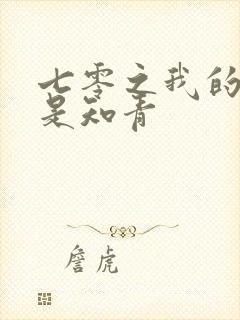 七零之我的
是知青
詹虎